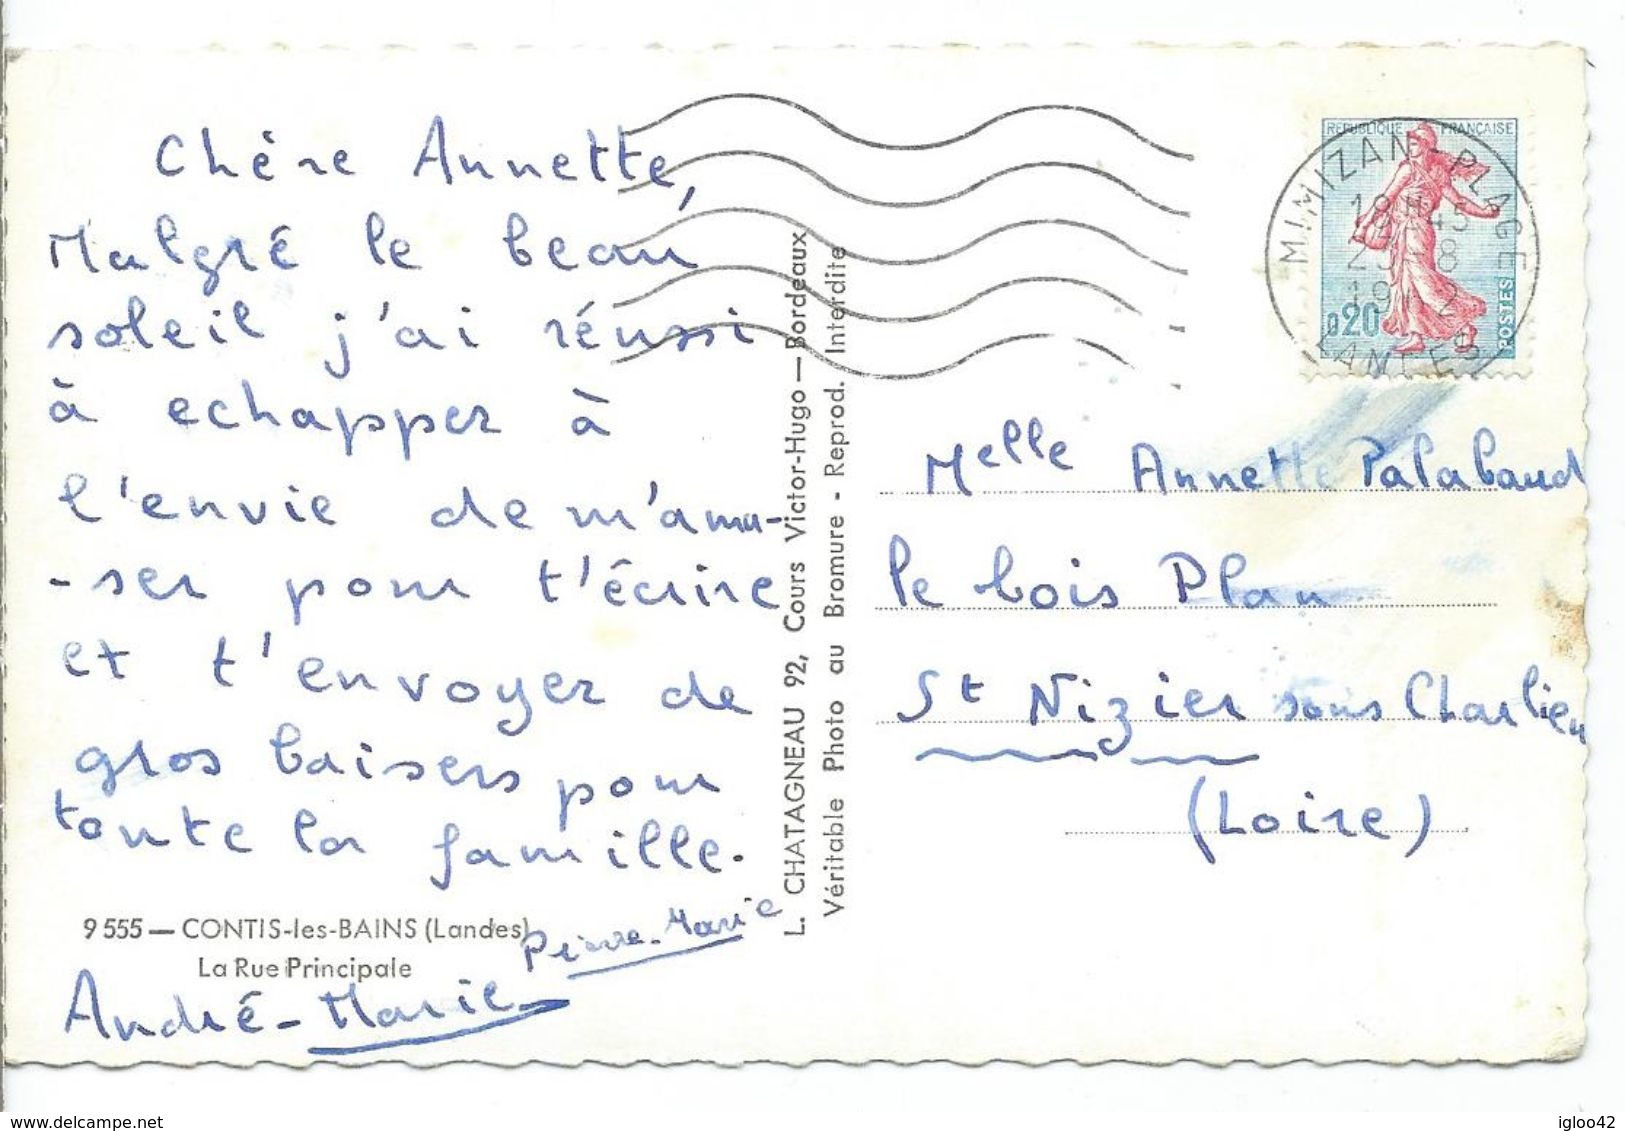 Chère Annette,
Malgré le beau
soleil j'ai réussi
à echapper à
l'envie de m'amu-
-ser pour t'écrire
et t'envoyer de
gros baisers pour
toute la famille.
9 555 — CONTIS-les-BAINS (Landes)
La Rue Principale
Pierre-Marie
André-Marie
L. CHATAGNEAU 92, Cours Victor-Hugo — Bordeaux
Véritable Photo au Bromure - Reprod. Interdite
REPUBLIQUE FRANÇAISE
0,20
POSTES
MIMIZAN-PLAGE
LANDES
Melle Annette Palabaud
le bois Plan
St Nizier sous Charlieu
(Loire)
igloo42
delcampe.net